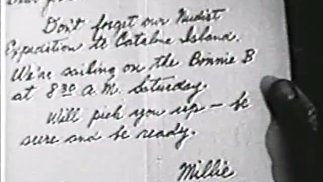 Don't forget our Nudist
Expedition to Catalina Island.
We're sailing on the Bonnie B
at 8:30 A.M. Saturday.
Will pick you up - be
sure and be ready.
Millie